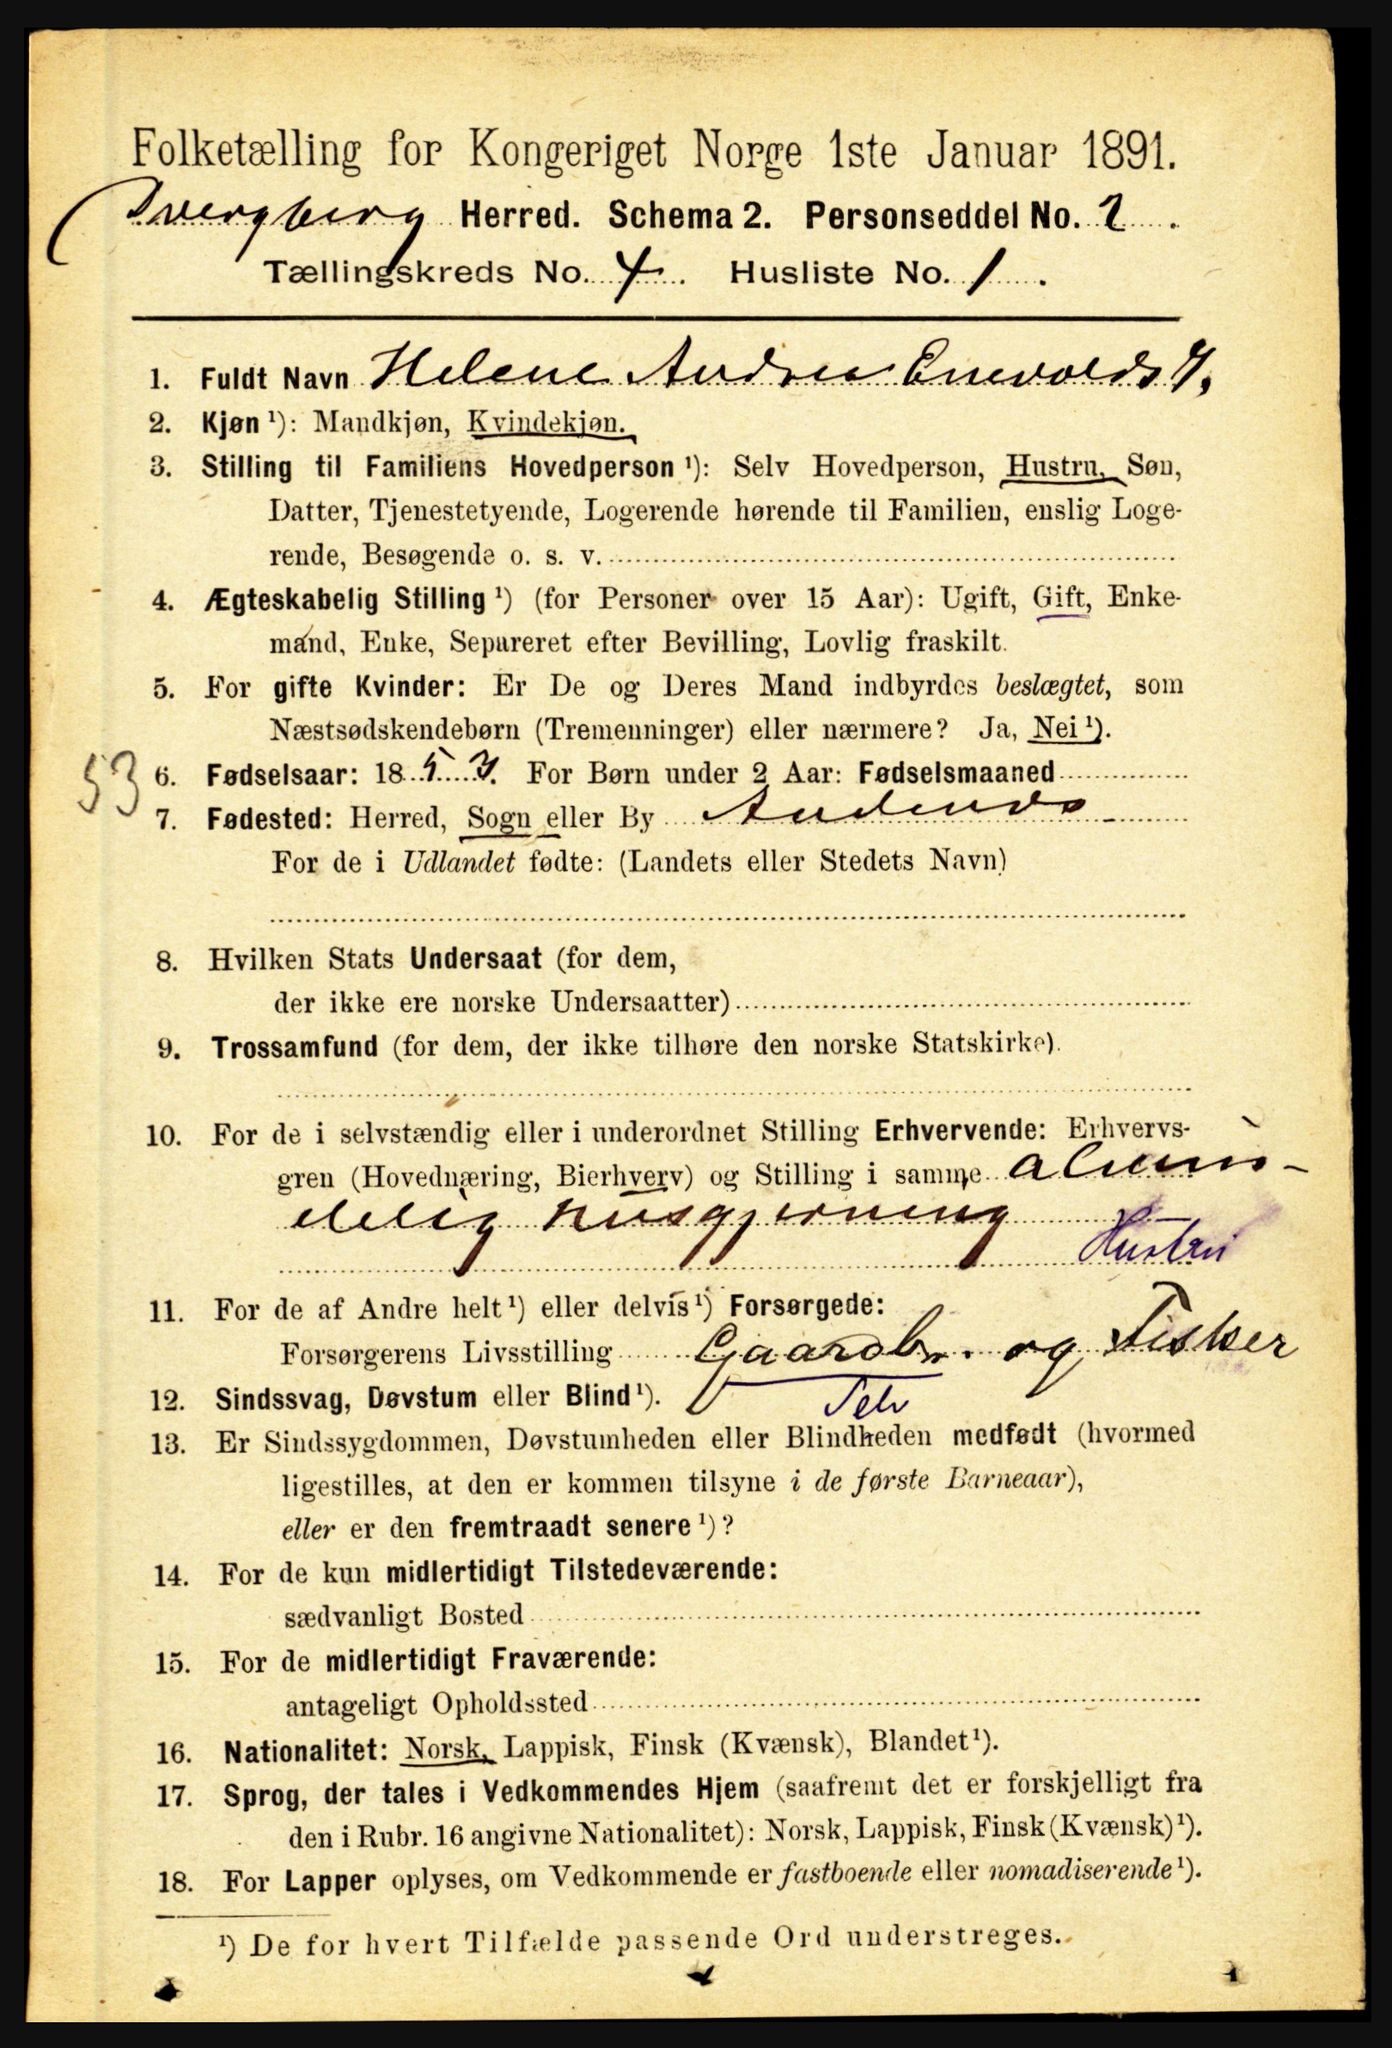 Folketælling for Kongeriget Norge 1ste Januar 1891.
Dvergberg Herred. Schema 2. Personseddel No. 2.
Tællingskreds No. 4. Husliste No. 1.
1. Fuldt Navn Helene Andrea Enevolds
2. Kjøn ¹): Mandkjøn, Kvindekjøn.
3. Stilling til Familiens Hovedperson ¹): Selv Hovedperson, Hustru, Søn,
Datter, Tjenestetyende, Logerende hørende til Familien, enslig Loge-
rende, Besøgende o. s. v.
4. Ægteskabelig Stilling ¹) (for Personer over 15 Aar): Ugift, Gift, Enke-
mand, Enke, Separeret efter Bevilling, Lovlig fraskilt.
5. For gifte Kvinder: Er De og Deres Mand indbyrdes beslægtet, som
Næstsødskendebørn (Tremenninger) eller nærmere? Ja, Nei ¹).
53
6. Fødselsaar: 1853. For Børn under 2 Aar: Fødselsmaaned
7. Fødested: Herred, Sogn eller By Andenæs
For de i Udlandet fødte: (Landets eller Stedets Navn)
8. Hvilken Stats Undersaat (for dem,
der ikke ere norske Undersaatter)
9. Trossamfund (for dem, der ikke tilhøre den norske Statskirke).
10. For de i selvstændig eller i underordnet Stilling Erhvervende: Erhvervs-
gren (Hovednæring, Bierhverv) og Stilling i samme almin-
delig husgjerning
Hustru
11. For de af Andre helt ¹) eller delvis ¹) Forsørgede:
Forsørgerens Livsstilling Gaardbr. og Fisker
12. Sindssvag, Døvstum eller Blind ¹).
Selv
13. Er Sindssygdommen, Døvstumheden eller Blindheden medfødt (hvormed
ligestilles, at den er kommen tilsyne i de første Barneaar),
eller er den fremtraadt senere ¹)?
14. For de kun midlertidigt Tilstedeværende:
sædvanligt Bosted
15. For de midlertidigt Fraværende:
antageligt Opholdssted
16. Nationalitet: Norsk, Lappisk, Finsk (Kvænsk), Blandet ¹).
17. Sprog, der tales i Vedkommendes Hjem (saafremt det er forskjelligt fra
den i Rubr. 16 angivne Nationalitet): Norsk, Lappisk, Finsk (Kvænsk) ¹).
18. For Lapper oplyses, om Vedkommende er fastboende eller nomadiserende ¹).
¹) De for hvert Tilfælde passende Ord understreges.